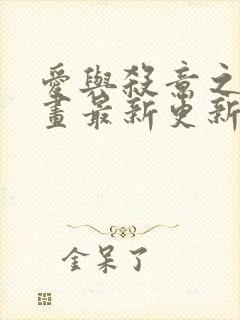 愛與殺意之
畫最新更新
金呆了